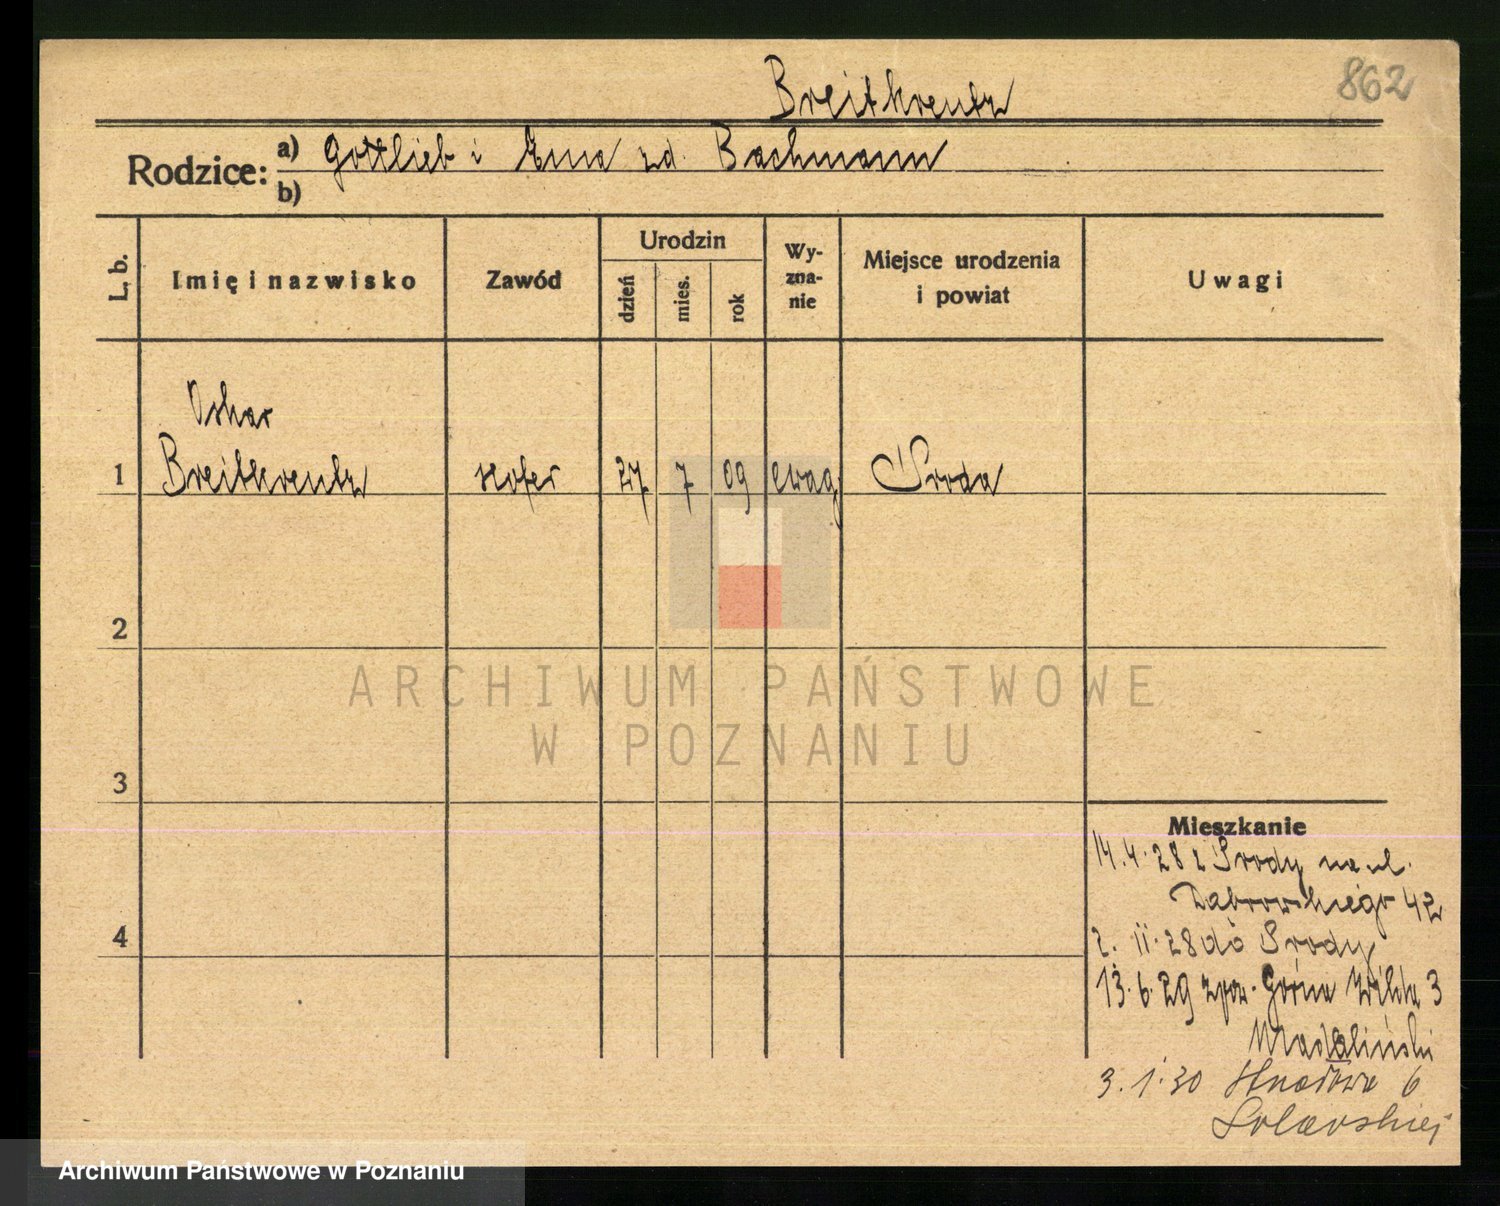 Breitkreutz
862
Rodzice: a) Gottlieb i Ema zd. Bachmann
b)
L. b. Imię i nazwisko Zawód Urodzin dzień mies. rok Wy-zna-nie Miejsce urodzenia i powiat Uwagi
Oskar
1 Breitkreutz szofer 27 7 09 ewag Środa
2
ARCHIWUM PAŃSTWOWE
W POZNANIU
3
Mieszkanie
14.4.28 z Środy na ul.
Dąbrowskiego 42
4
2. 11.28 do Środy
13.6.29 Górna Wilda 3
Madaliński
3.1.30 6
Archiwum Państwowe w Poznaniu